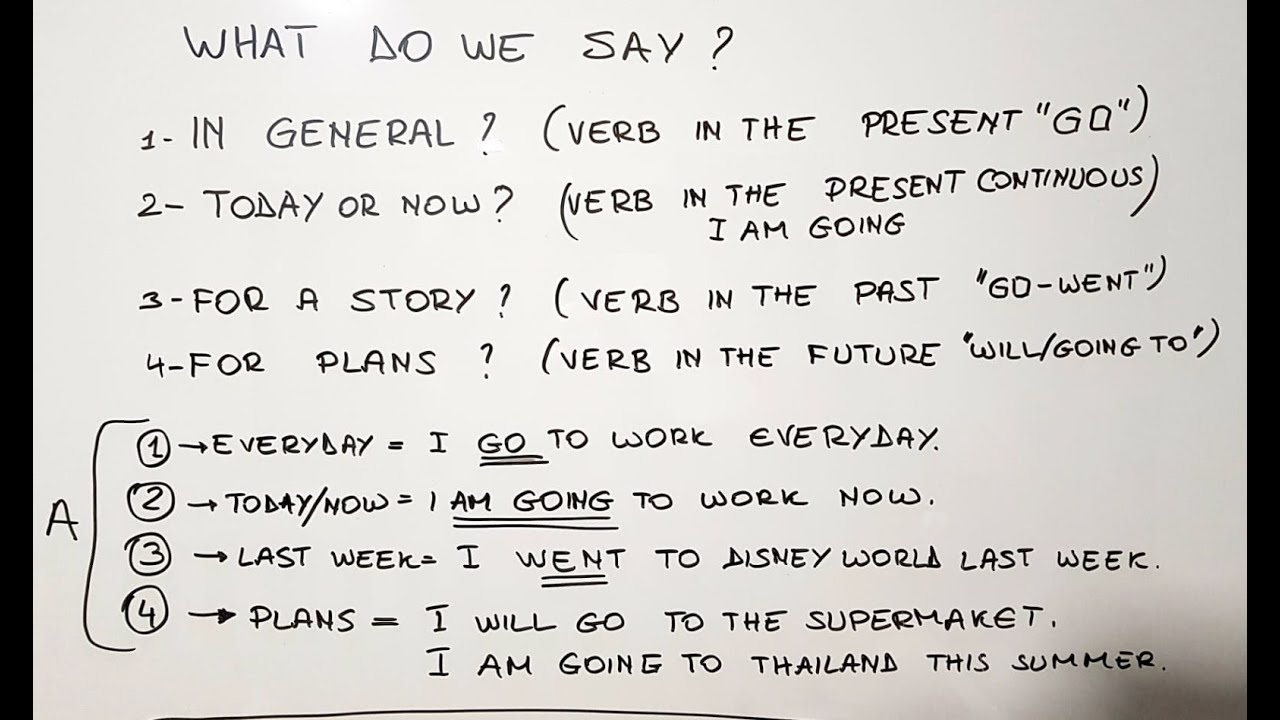 WHAT DO WE SAY?
1- IN GENERAL? (VERB IN THE PRESENT "GO")
2- TODAY OR NOW? (VERB IN THE PRESENT CONTINUOUS)
I AM GOING
3-FOR A STORY? (VERB IN THE PAST "GO-WENT")
4-FOR PLANS? (VERB IN THE FUTURE "WILL/GOING TO")
A
1 → EVERYDAY = I GO TO WORK EVERYDAY.
2 → TODAY/NOW = I AM GOING TO WORK NOW.
3 → LAST WEEK= I WENT TO DISNEY WORLD LAST WEEK.
4 → PLANS = I WILL GO TO THE SUPERMAKET.
I AM GOING TO THAILAND THIS SUMMER.